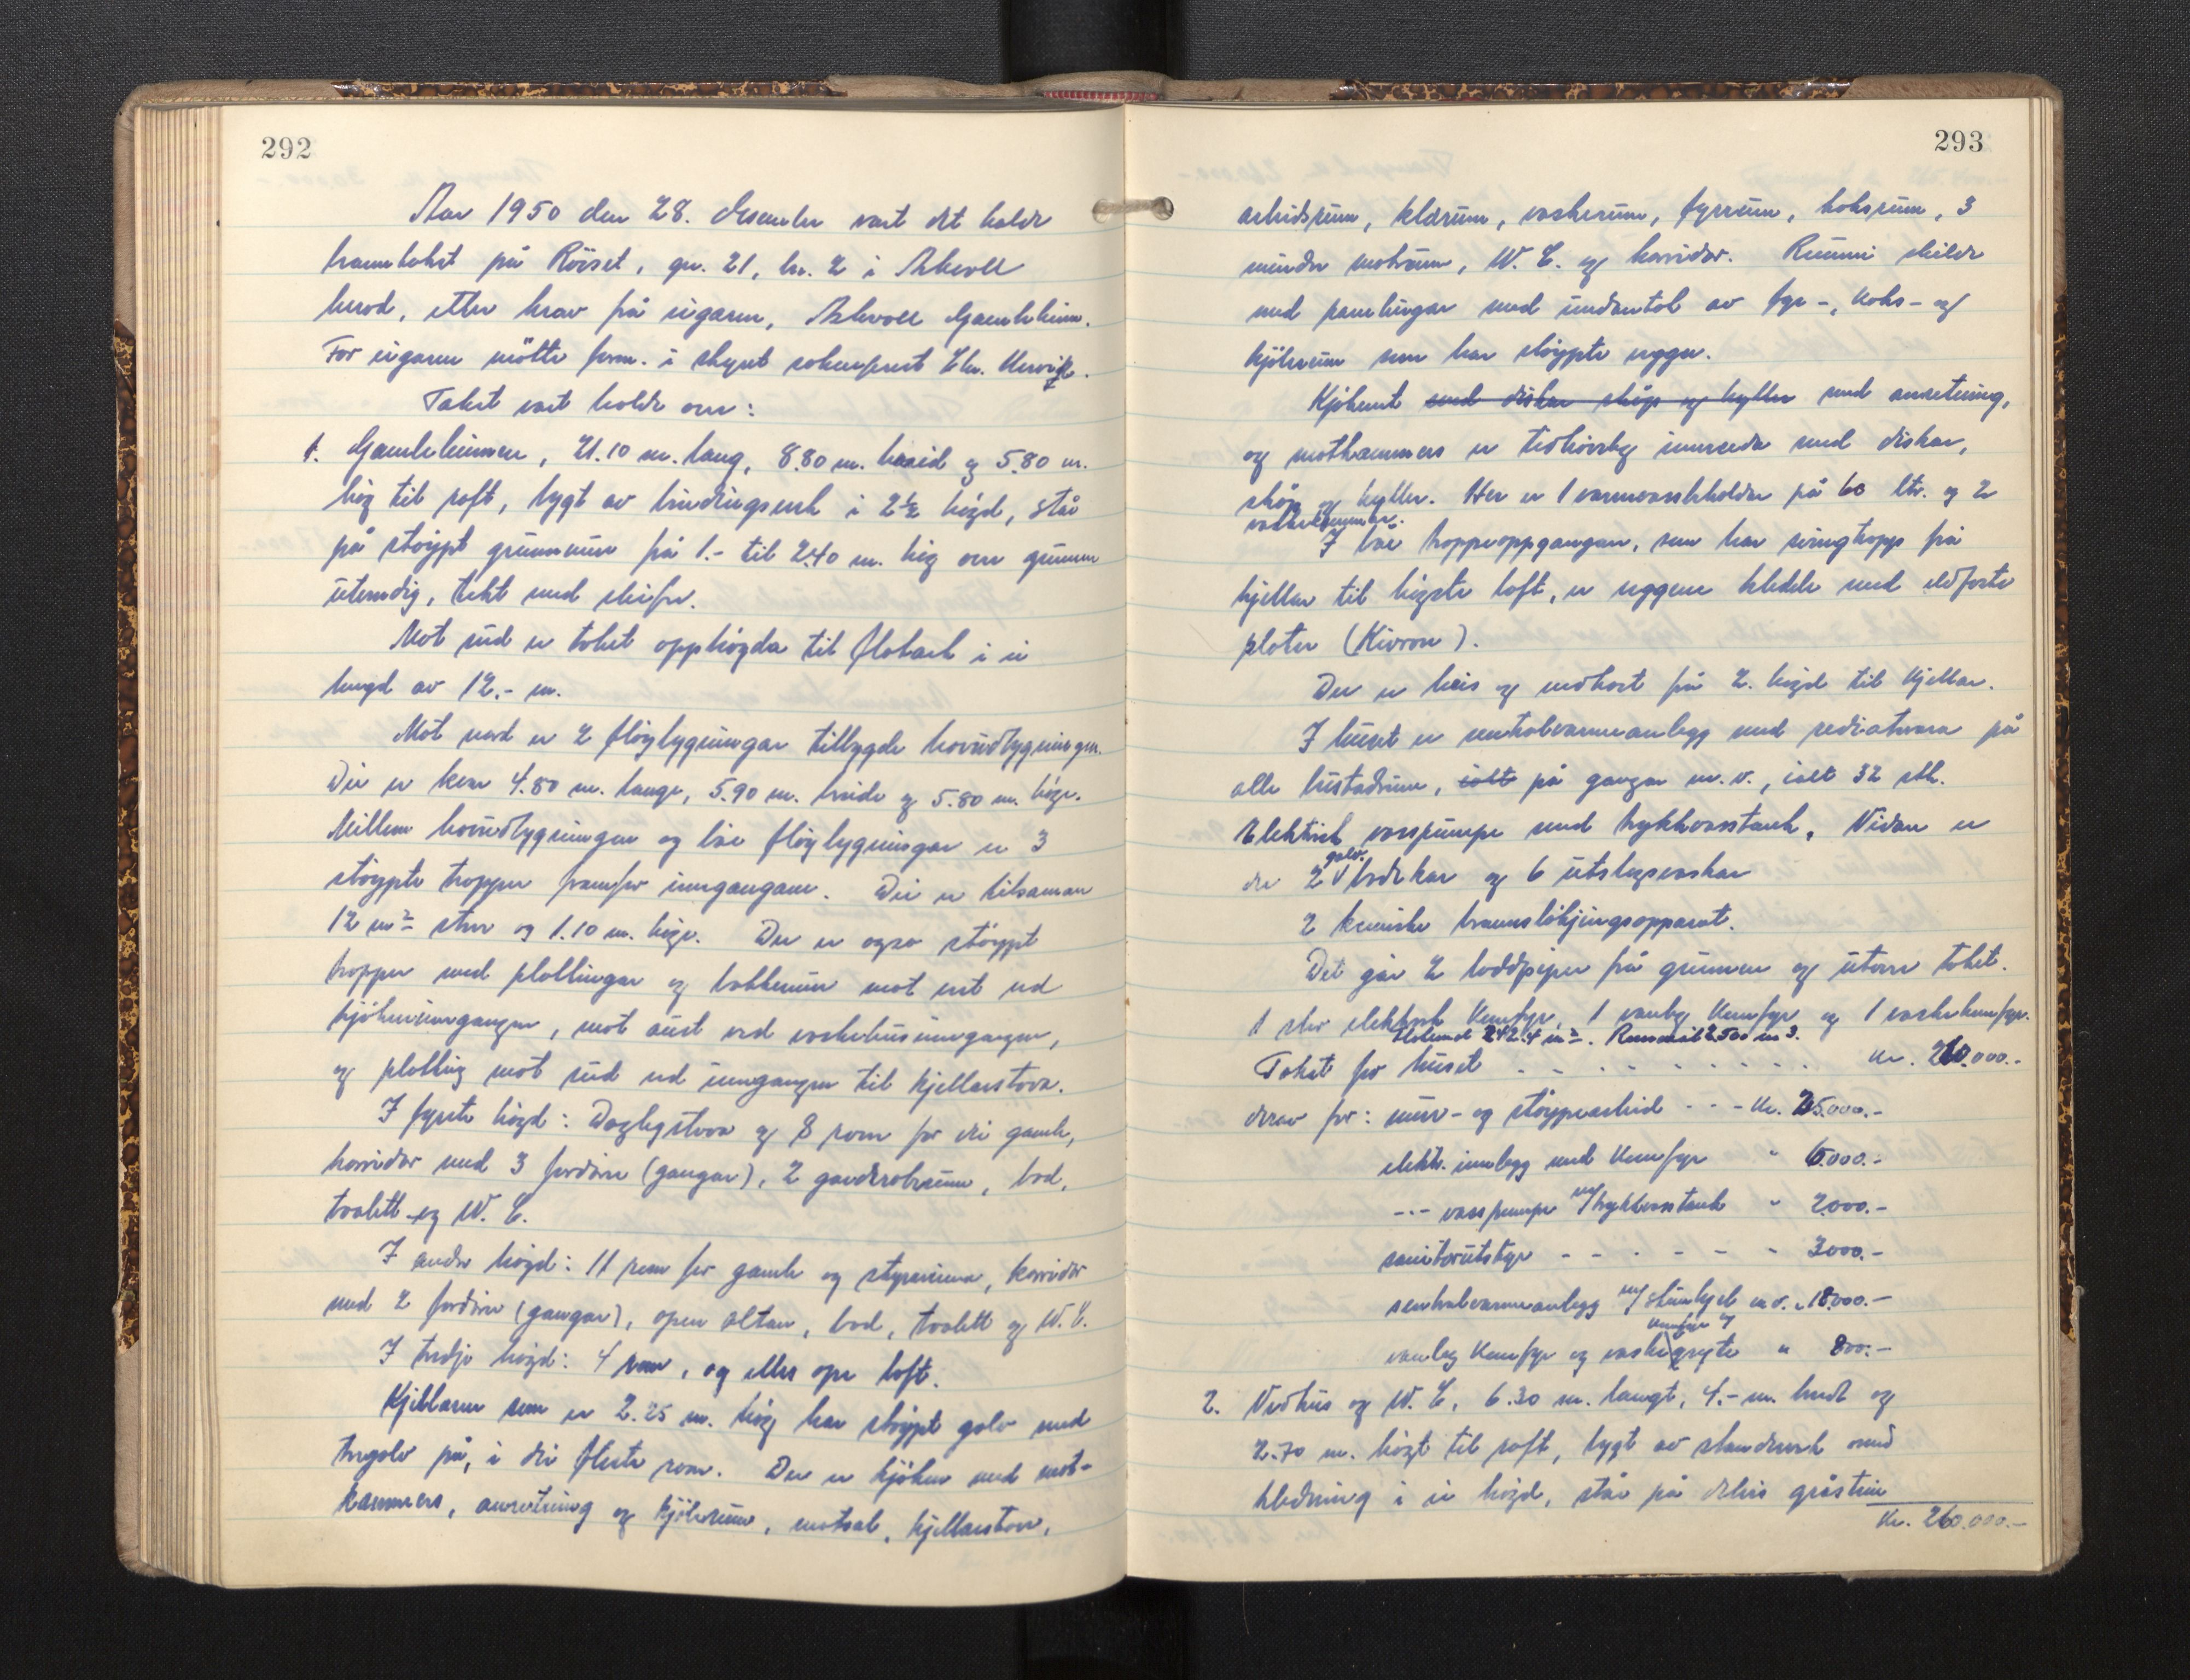 292
Aar 1950 den 28. desember vart det halde
branntakst på Röyset, gn. 21, bn. 2 i Askvoll
herad, etter krav frå eigaren, Askvoll Gamleheim.
For eigaren mötte form. i styret sokneprest Chr.
Takst vart halde over:
1. Gamleheimen, 21.10 m. lang, 8.80 m. breid og 5.80 m.
høg til raft, bygt av bindingsverk i 2½ høgd, står
på støypt grunnmur frå 1.- til 2.40 m. høg over grunnen
utvendig, tekt med skifer.
Mot sud er taket opphøgda til flatark i ei
lengd av 12.- m.
Mot nord er 2 fløybygningar tilbygde hovudbygningen.
Dei er kvar 4.80 m. lange, 5.90 m. breide og 5.80 m. høge.
Millom hovudbygningen og båe fløybygningar er 3
støypte tropper framfor inngangane. Dei er tilsaman
12 m² store og 1.10 m. høge. Der er ogso støypt
tropper med plattingar og bakkemur mot vest ved
kjökeninngangen, mot aust ved vaskehusinngangen,
og platting mot sud ved inngangen til kjellarstova.
I fyrste høgd: Daglegstova og 8 rom for dei gamle,
korridor med 3 fordöre (gangar), 2 garderoberum, bad,
toalett og W. C.
I andre høgd: 11 rom for gamle og styrarinna, korridor
med 2 fordöre (gangar), open altan, bad, toalett og W. C.
I tredje høgd: 4 rom, og elles ope loft.
Kjellaren som er 2.25 m. høg har støypt golv med
tregolv på, i dei fleste rom. Der er kjöken med mat-
kammers, anretning og kjölerum, matsal, kjellarstova,
293
arbeidsrum, klærum, vaskerum, fyrrum, koksrum, 3
mindre matrum, W. C. og korridor. Rummi skilde
med panelingar med undantak av fyr-, koks- og
kjölerum som har støypte vegger.
Kjökenet med diskar skåp og hyller med anretning,
og matkammers er tidhövleg innreda med diskar,
skåp og hyller. Her er 1 varmvassbehaldar på 60 ltr. og 2
vaskekummar.
I båe troppeoppgangar, som har svingtropp frå
kjellar til høgste loft, er veggene kledde med eldfaste
plater
Der er heis og nedkast frå 2. høgd til kjellar.
I huset er sentralvarmeanlegg med radiatorar på
alle bustadrum, ialt på gangar m. v., ialt 32 stk.
Elektrisk vasspumpe med trykkvasstank. Vidare er
golv.
der 2 V badekar og 6 utslagsvaskar
2 kemiske brannslökjingsapparat.
Det går 2 loddpiper frå grunnen og utover taket.
1 stor elektrisk komfyr, 1 vanleg komfyr og 1 vaskekomfyr.
Flatemål 242.4 m². Rommål 2500 m3.
Takst for huset - - - - - - - - - kr. 260.000.-
derav for: mur- og støypearbeid - - - kr. 25.000.-
elektr. innlegg med komfyr " 6.000.-
-.- vasspumpe m/trykkvasstank " 2.000.-
sanitærutstyr - - - - - - " 3000.-
sentralvarmeanlegg m/ m. v. " 18.000.-
komfyr og
vanleg komfyr og vaskegryte " 800.-
2. Vedhus og W. C, 6.30 m. langt, 4.- m. breidt og
2.70 m. høgt til raft, bygt av standverk med
kledning i ei høgd, står på delvis gråstein
Kr. 260.000.-